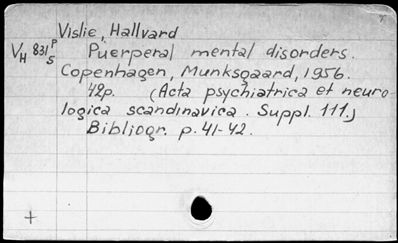 Vislie, Hallvard
VH 831 P 5 Puerperal mental disorders.
Copenhagen, Munksgaard, 1956.
42p. (Acta psychiatrica et neuro
logica scandinavica. Suppl. 111.)
Bibliogr. p. 41-42.
+